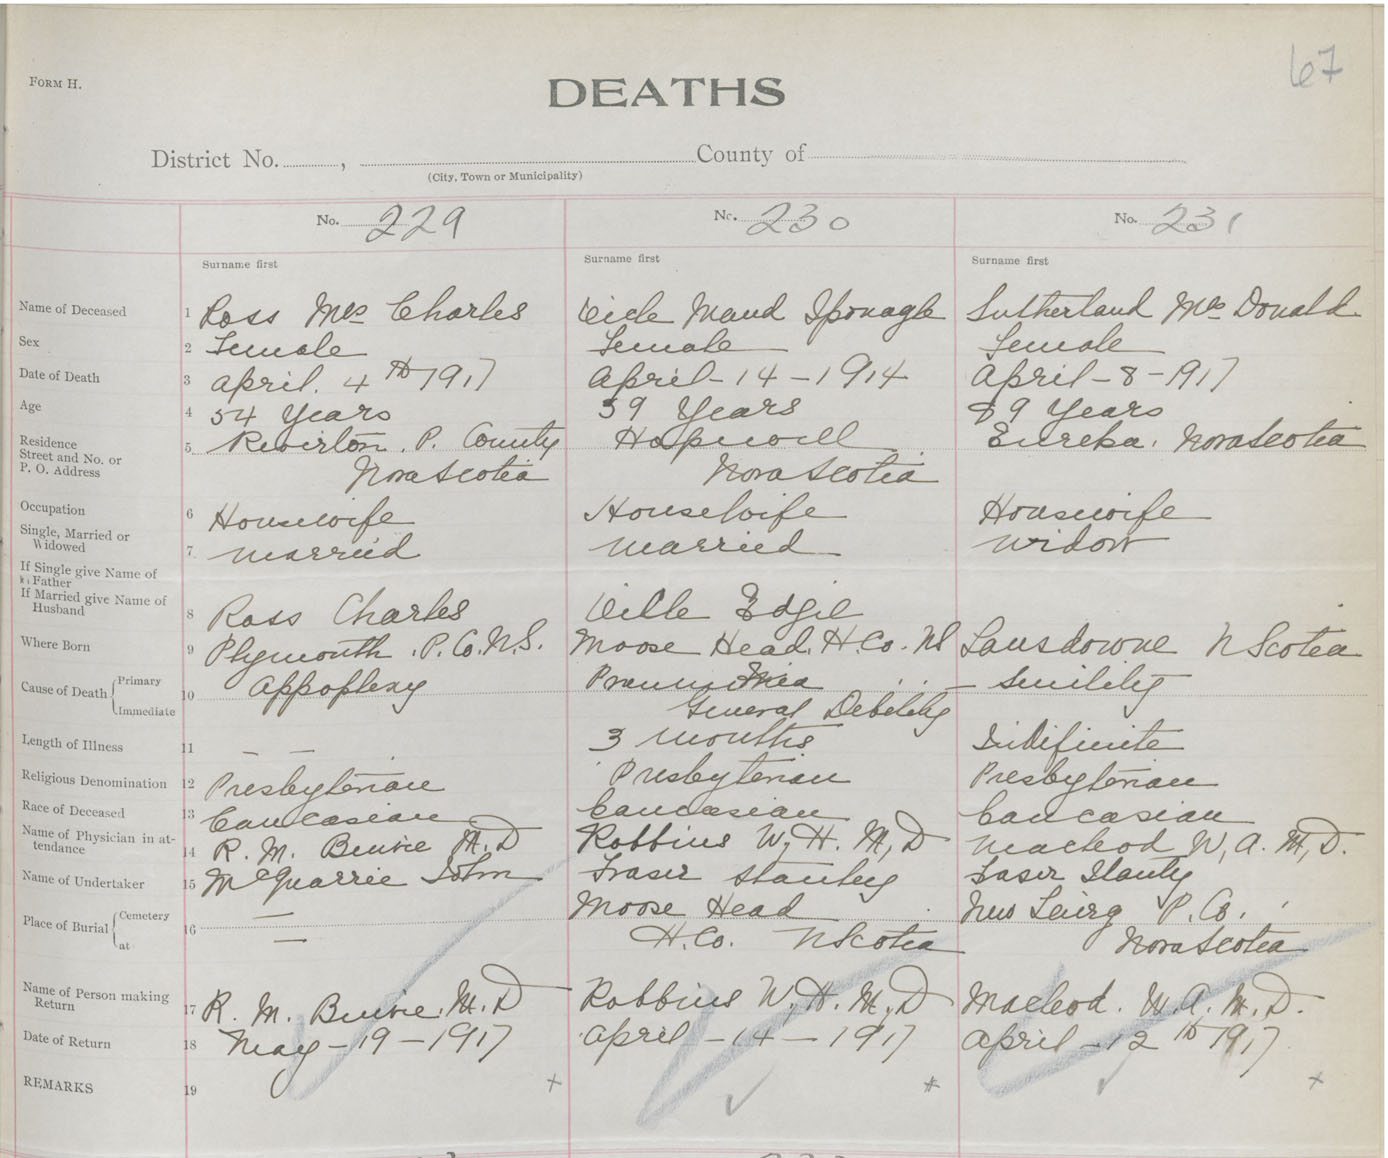 67
FORM H.
DEATHS
District No. , County of
(City, Town or Municipality)
No. 229 No. 230 No. 231
Surname first Surname first Surname first
Name of Deceased 1 Ross Mrs Charles Maud Sponagle Sutherland Mrs Donald
Sex 2 Female Female Female
Date of Death 3 April. 4th 1917 April-14-1914 April-8-1917
Age 4 54 Years 39 Years 89 Years
Residence Street and No. or P. O. Address 5 Riverton. P. County Hopewell Eureka. Nova Scotia
Nova Scotia Nova Scotia
Occupation 6 Housewife Housewife Housewife
Single, Married or Widowed 7 Married Married Widow
If Single give Name of Father
If Married give Name of Husband 8 Ross Charles
Where Born 9 Plymouth. P. Co. N.S. Moose Head. H. Co. NS Lansdowne N Scotia
Cause of Death { Primary Immediate 10 Appoplexy Senility
General Debility
Length of Illness 11 — — 3 months Indifinite
Religious Denomination 12 Presbyterian Presbyterian Presbyterian
Race of Deceased 13 Caucasian Caucasian Caucasian
Name of Physician in attendance 14 R. M. M.D Robbins W, H. M,D Macleod W, A. M,D.
Name of Undertaker 15 McQuarrie John Fraser Stanley Fraser Stanley
Place of Burial { Cemetery at 16 — Moose Head New Lairg P. Co.
— H. Co. N Scotia Nova Scotia
Name of Person making Return 17 R. M. M.D Robbins W, H. M,D Macleod. W. A. M.D.
Date of Return 18 May-19-1917 April-14-1917 April-12th 1917
REMARKS 19 + # +